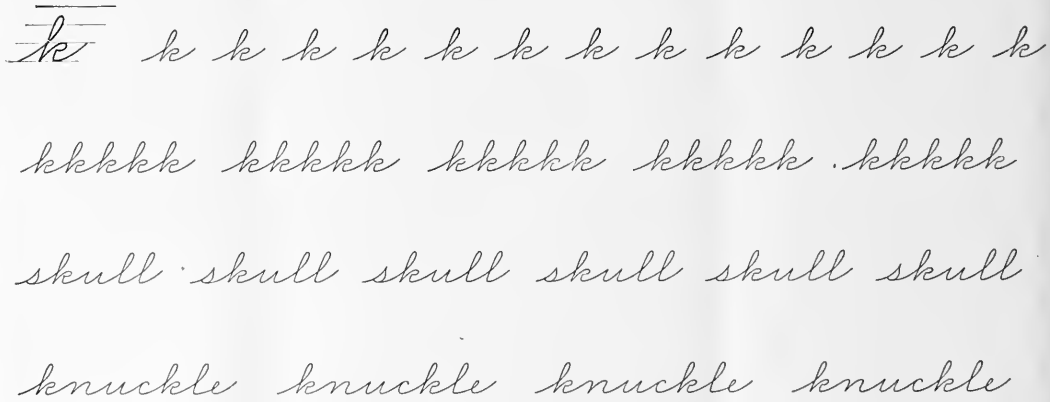 k k k k k k k k k k k k k k
kkkkk kkkkk kkkkk kkkkk kkkkk
skull skull skull skull skull skull
knuckle knuckle knuckle knuckle